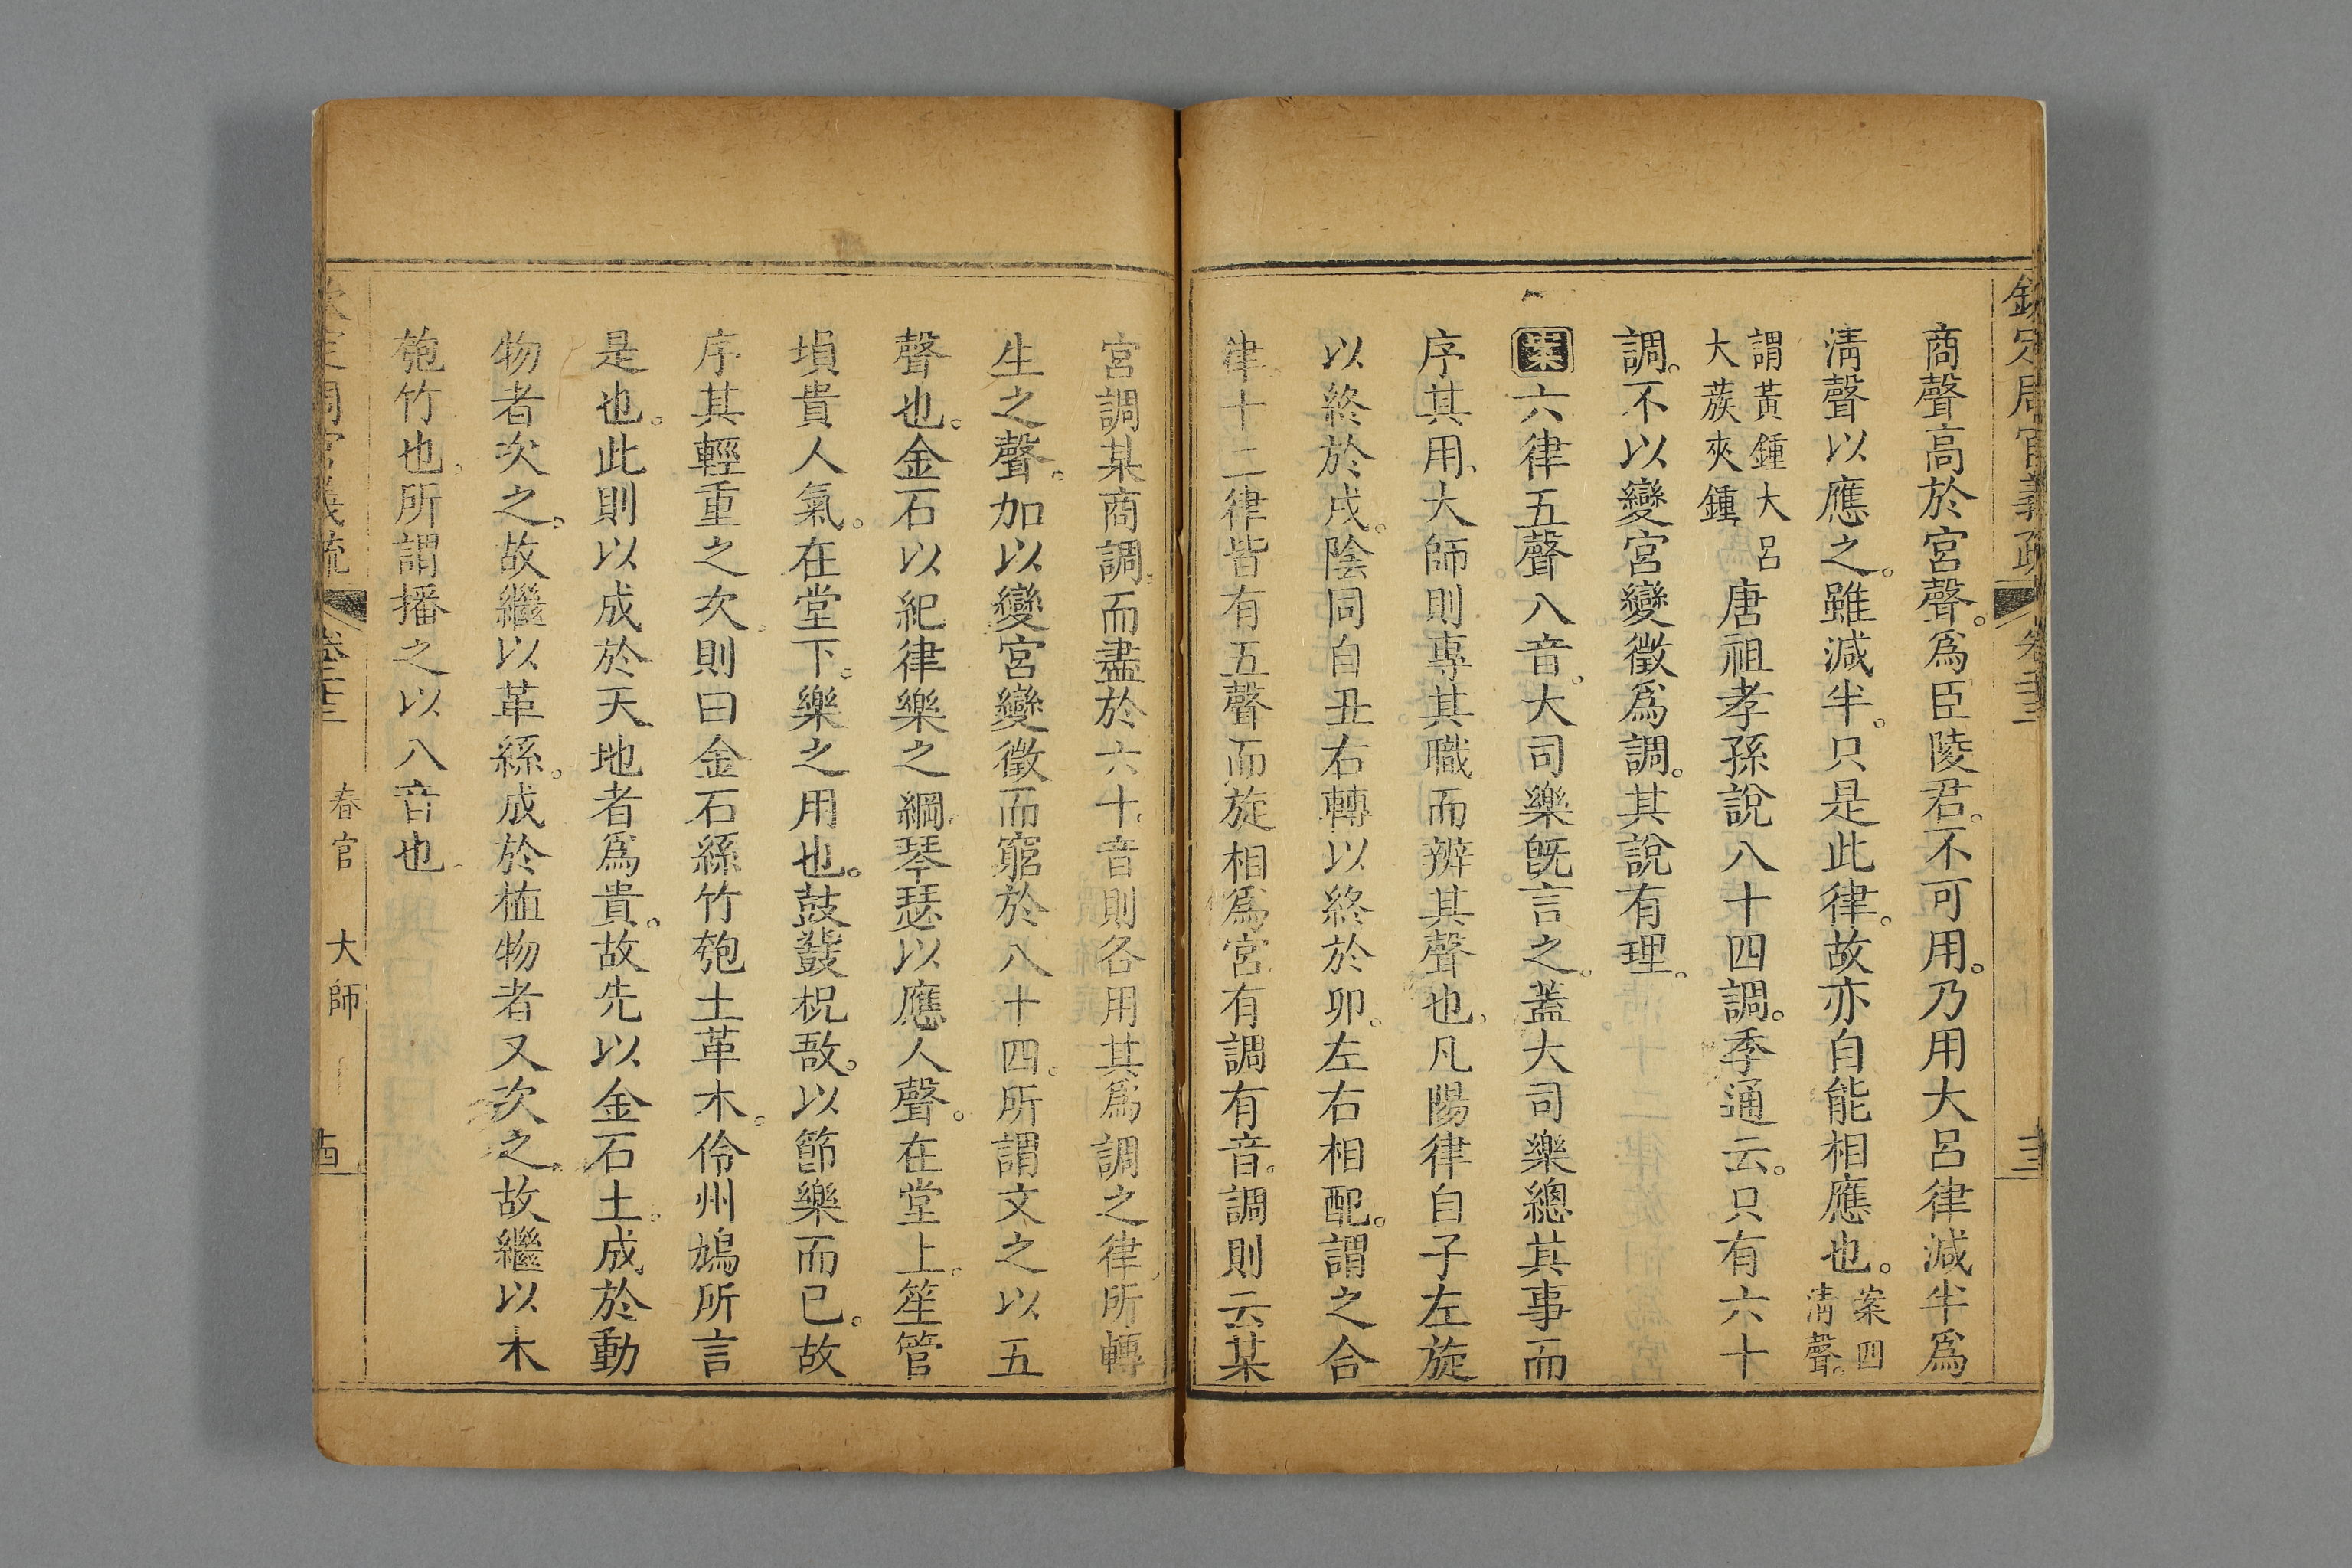 欽定周官義疏 卷二十三 二十三
商聲高於宮聲。爲臣陵君。不可用。乃用大呂律減半爲
淸聲以應之。雖減半。只是此律。故亦自能相應也。案四淸聲。
謂黃鍾大呂大蔟夾鍾唐祖孝孫說八十四調。季通云。只有六十
調。不以變宮變徵爲調。其說有理。
案六律五聲八音。大司樂旣言之。蓋大司樂總其事而
序其用、大師則專其職而辨其聲也。凡陽律自子左旋
以終於戌。陰同自丑右轉以終於卯。左右相配。謂之合
律。十二律皆有五聲而旋相爲宮。有調有音。調則云某
宮調某商調。而盡於六十。音則各用其爲調之律所轉
生之聲。加以變宮變徵而窮於八十四。所謂文之以五
聲也。金石以紀律樂之綱。琴瑟以應人聲。在堂上。笙管
塤貴人氣。在堂下。樂之用也。鼓鼗柷敔。以節樂而已。故
序其輕重之次。則曰金石絲竹匏土革木。伶州鳩所言
是也。此則以成於天地者爲貴。故先以金石土。成於動
物者次之。故繼以革絲。成於植物者又次之。故繼以木
匏竹也。所謂播之以八音也
定周官義疏 卷二十三 春官 大師